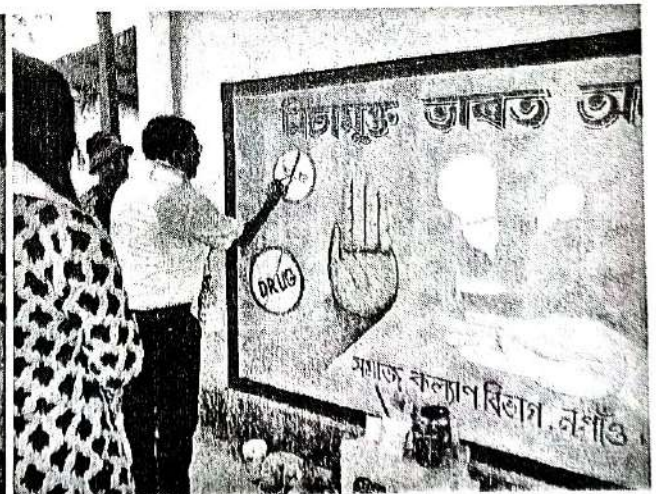 নিচামুক্ত ভাৰত
DRUG
সমাজ কল্যাণ বিভাগ, নগাঁও